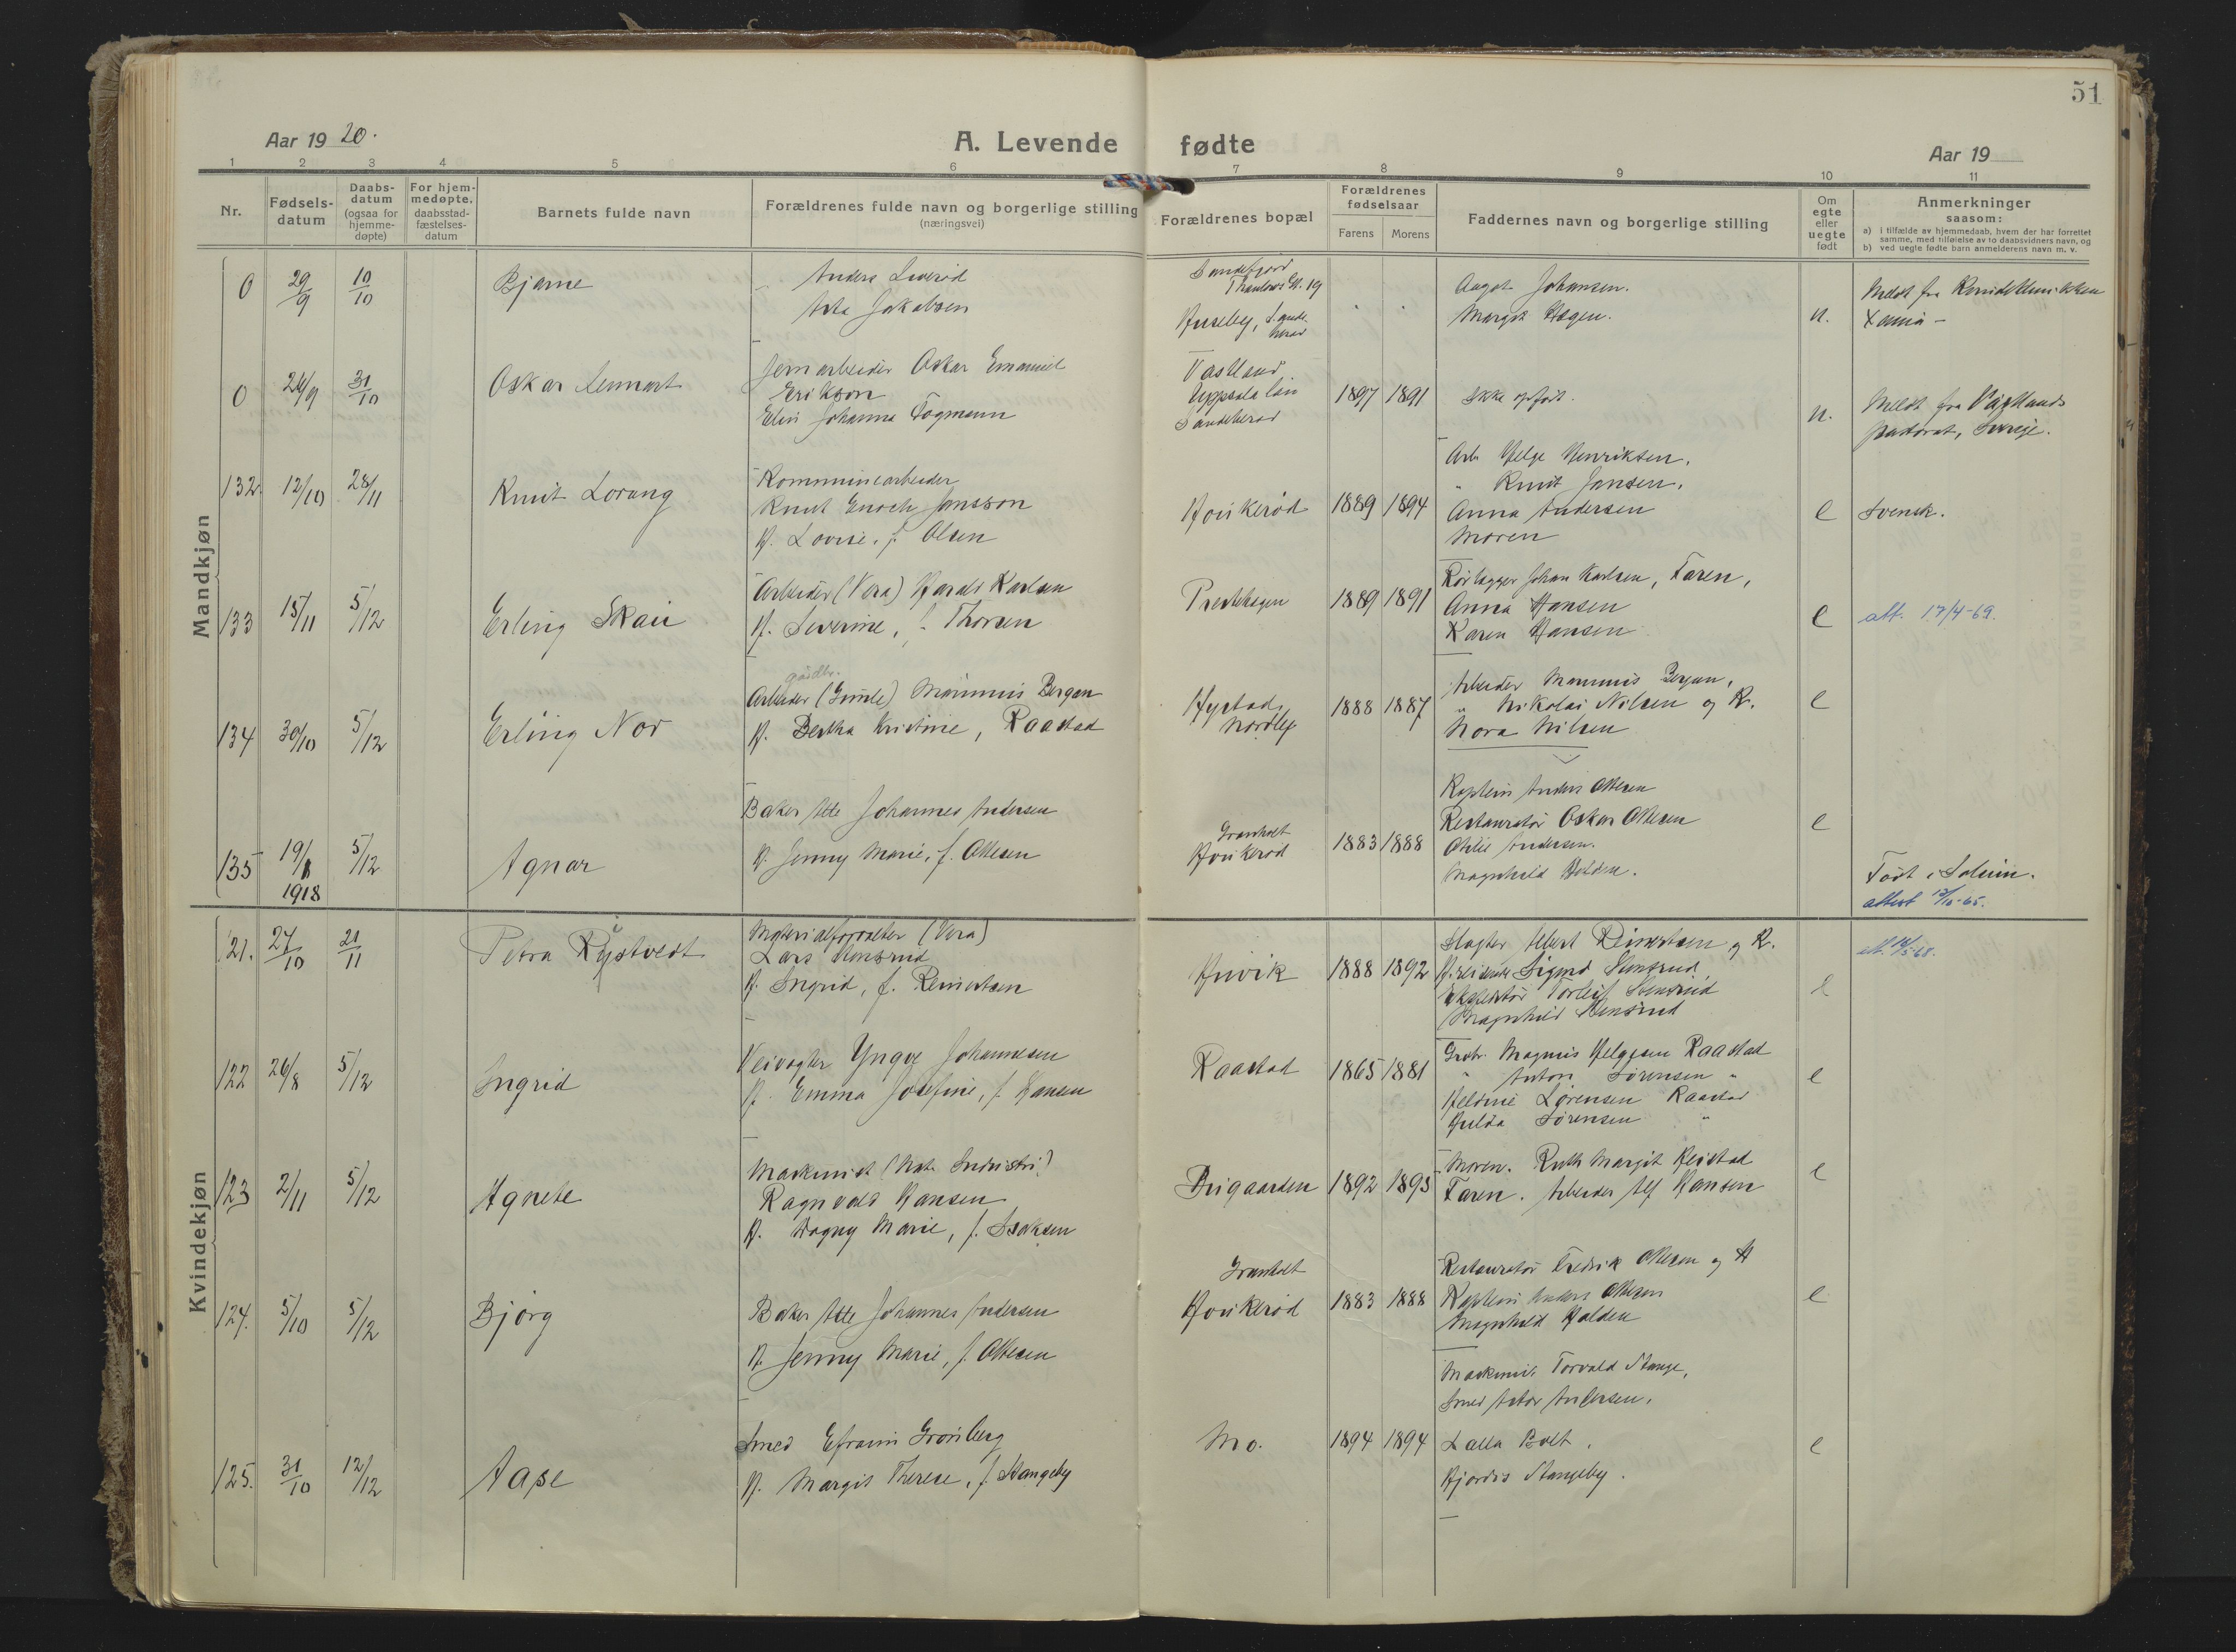 51
Aar 1920.
A. Levende fødte
Aar 19
1 2 3 4 5 6 7 8 9 10 11
Nr.
Fødsels-
datum
Daabs-
datum
(ogsaa for
hjemme-
døpte)
For hjem-
medøpte.
daabsstad-
fæstelses-
datum
Barnets fulde navn
Forældrenes fulde navn og borgerlige stilling
(næringsvei)
Forældrenes bopæl
Forældrenes
fødselsaar
Farens Morens
Faddernes navn og borgerlige stilling
Om
egte
eller
uegte
født
Anmerkninger
saasom:
a) i tilfælde av hjemmedaab, hvem der har forrettet
samme, med tilføielse av to daabsvidners navn, og
b) ved uegte fødte barn anmelderens navn m. v.
Mandkjøn
0 29/9 10/10 Bjarne
Anders
Jakobsen
Sandefjord
19
Johansen.
Margit Hagen.
u.
Meldt fra
0 24/9 31/10 Oskar Lennart
Jernarbeider Oskar Emanuel
Erikson
Elin Johanna Fogmann
Vastland
Uppsala län
Sandeherad
1897 1891
Ikke opført.
u.
Meldt fra
pastorat, Sverige.
132 12/10 28/11 Knut Lorang
Kommunearbeider
Knut Enoch Jansson
H. Lovise, f. Olsen
Hovikerød
1889 1894
Arb. Helge Henriksen,
" Knut Jansen,
Anna Andersen
Moren
e
Svensk.
133 15/11 5/12 Erling Skau
Arbeider (Vera) Harald Karlsen
H. Severine, f. Thorsen
Prestehagen
1889 1891
Rørlægger Johan Karlsen, Faren,
Anna Hansen
Karen Hansen
e
att. 17/4-69.
134 30/10 5/12 Erling Nor
gårdbr.
Arbeider (Gimle) Mammus Bergan
H. Bertha Kristine, Raastad
Hystad,
Nordby
1888 1887
Arbeider Mammus Bergan,
" Nikolai Nilsen og K.
Nora Nilsen
e
135 19/ 5/12 Agnar
1918
Baker Atle Johannes Andersen
H. Jenny Marie, f. Ottesen
Granholt
Hovikerød
1883 1888
Kaptein Anders Ottesen
Restauratør Oskar Ottesen
Otilie Andersen.
Magnhild Holden.
e
Født i Solum.
attest
Kvindekjøn
121. 27/10 21/11 Petra Rystvedt
Materialforvalter (Vera)
Lars
H. Ingrid, f. Reinertsen
Huvik
1888 1892
Slagter Albert og K.
Sigurd
Torleif
Magnhild
e
122 26/8 5/12 Ingrid
Veivogter Yngve Johannesen
H. Emma Josefine, f. Hansen
Raastad
1865 1881
Grbr. Magnus Helgesen Raastad
" Anton Sørensen "
Heldine Sørensen Raastad
Hulda Sørensen "
e
123 2/11 5/12 Agnete
Maskinist (Nat. Industri)
Ragnvald Hansen
H. Dagny Marie, f. Isaksen
Brigaarden
1892 1895
Moren. Ruth Margit
Faren. Arbeider Alf Hansen
e
124. 5/10 5/12 Bjørg
Baker Atle Johannes Andersen
H. Jenny Marie, f. Ottesen
Granholt
Hovikerød
1883 1888
Restauratør Fredrik Ottesen og H
Kaptein Anders Ottesen
Magnhild Holden
e
125. 31/10 12/12 Aase
Smed Efraim Grønberg
H. Margit Therese, f. Stangeby
Mo.
1894 1894
Maskinist Torvald Stange,
Smed Anton Andersen,
Lalla Bolt,
Hjørdis Stangeby.
e